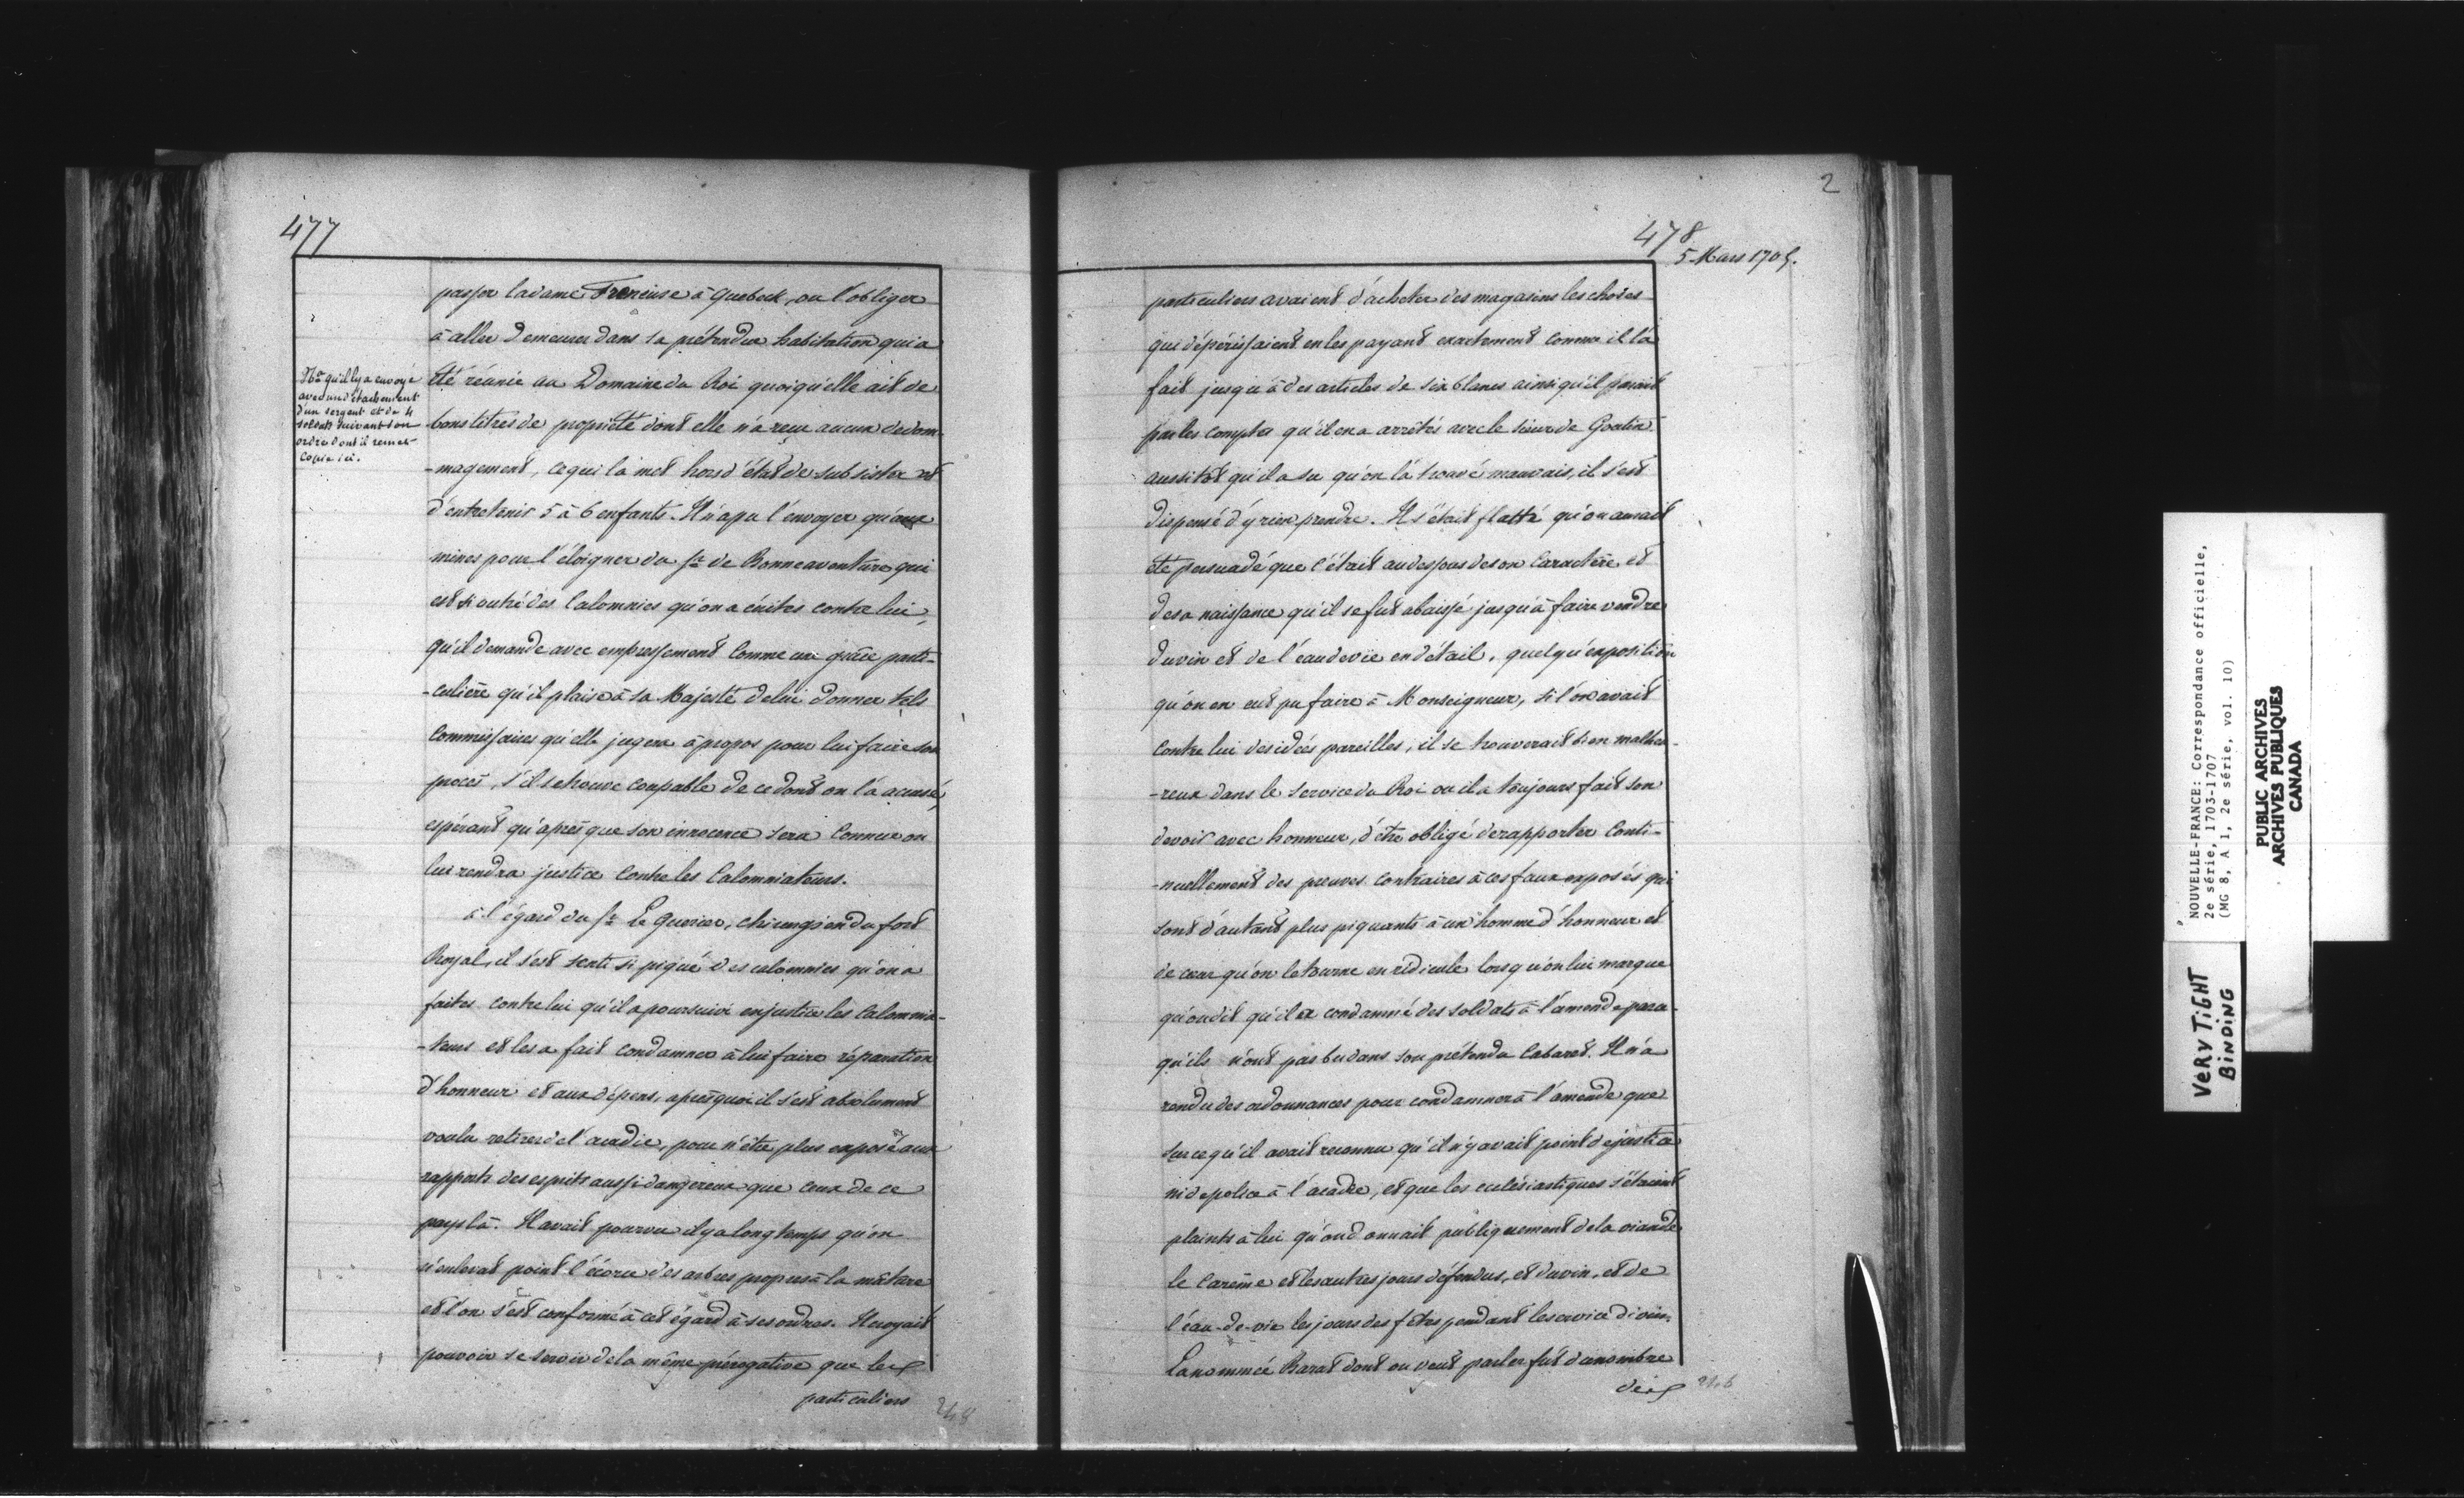 477
passer la dame Freneuse à Quebeck, ou l'obliger
à aller Demeurer dans sa prétendue habitation qui a
été réunie au Domaine du Roi quoiqu'elle ait de
bons titres de propriété dont elle n'a reçu aucun dedom-
-magement, ce qui la met hors d'état de subsister et
d'entretenir 5 à 6 enfants. Il n'a pu l'envoyer qu'aux
mines pour l'éloigner du Sr. de Bonneaventure qui
est si outré des Calomnies qu'on a écrites contre lui,
qu'il demande avec empressement Comme une grâce parti-
-culière qu'il plaise à Sa Majesté de lui donner tels
Commissaires qu'elle jugera à propos pour lui faire son
procès, s'il se trouve coupable de ce dont on l'a accusé,
espérant qu'après que son innocence sera Connue on
lui rendra justice Contre les Calomniateurs.
à l'égard du Sr. Le Querier, chirurgien du fort
Royal, il s'est senti si piqué des calomnies qu'on a
faites contre lui qu'il a poursuivi en justice les Calomnia-
-teurs et les a fait condamner à lui faire réparation
d'honneur et aux dépens, après quoi il s'est absolument
voulu retirer de l'acadie, pour n'être plus exposé aux
rapports des esprits aussi dangereux que ceux de ce
pays là. Il avait pourvu il y a longtemps qu'on
n'enlevat point l'écorce des arbres propres à la mâture
et l'on s'est conformé à cet égard à ses ordres. Il croyait
pouvoir se servir de la même prérogative que les
particuliers
248
Na qu'il l'y a envoyé
avec un détachement
d'un sergent et de 4
soldats suivant son
ordre dont il remet
Copie ici.
2
478
5 Mars 1705.
particuliers avaient d'acheter des magasins les choses
qui dépérissaient en les payant exactement comme il l'a
fait jusqu'à des articles de six blancs ainsi qu'il parait
par les Comptes qu'il en a arrêtés avec le sieur de Goutin
aussitôt qu'il a su qu'on l'a trouvé mauvais, il s'est
dispensé d'y rien prendre. Il s'était flatté qu'on aurait
été persuadé que c'était au dessous de son Caractère et
de sa naissance qu'il se fut abaissé jusqu'à faire vendre
du vin et de l'eau de vie en détail, quelqu'exposition
qu'on en eut pu faire à Monseigneur, si l'on avait
contre lui des idées pareilles, il se trouverait bien malheu-
-reux dans le service du Roi ou il a toujours fait son
devoir avec honneur, d'être obligé de rapporter Conti-
-nuellement des preuves contraires à ces faux exposés qui
sont d'autant plus piquants à un homme d'honneur et
de cœur qu'on le tourne en ridicule lorsqu'on lui marque
qu'on dit qu'il a condamné des soldats à l'amende parce
qu'ils n'ont pas bu dans son prétendu Cabaret. Il n'a
rendu des ordonnances pour condamner à l'amende que
sur ce qu'il avait reconnu qu'il n'y avait point de justice
ni de police à l'acadie, et que les eclésiastiques s'étaient
plaints à lui qu'on donnait publiquement de la viande
le Carême et les autres jours défendus, et du vin, et de
l'eau-de-vie les jours des fêtes pendant le service divin.
La nommée Barat dont on veut parler fut du nombre
de
NOUVELLE-FRANCE: Correspondance officielle,
2e série, 1703-1707
(MG 8, A 1, 2e série, vol. 10)
PUBLIC ARCHIVES
ARCHIVES PUBLIQUES
CANADA
VERY TIGHT
BINDING